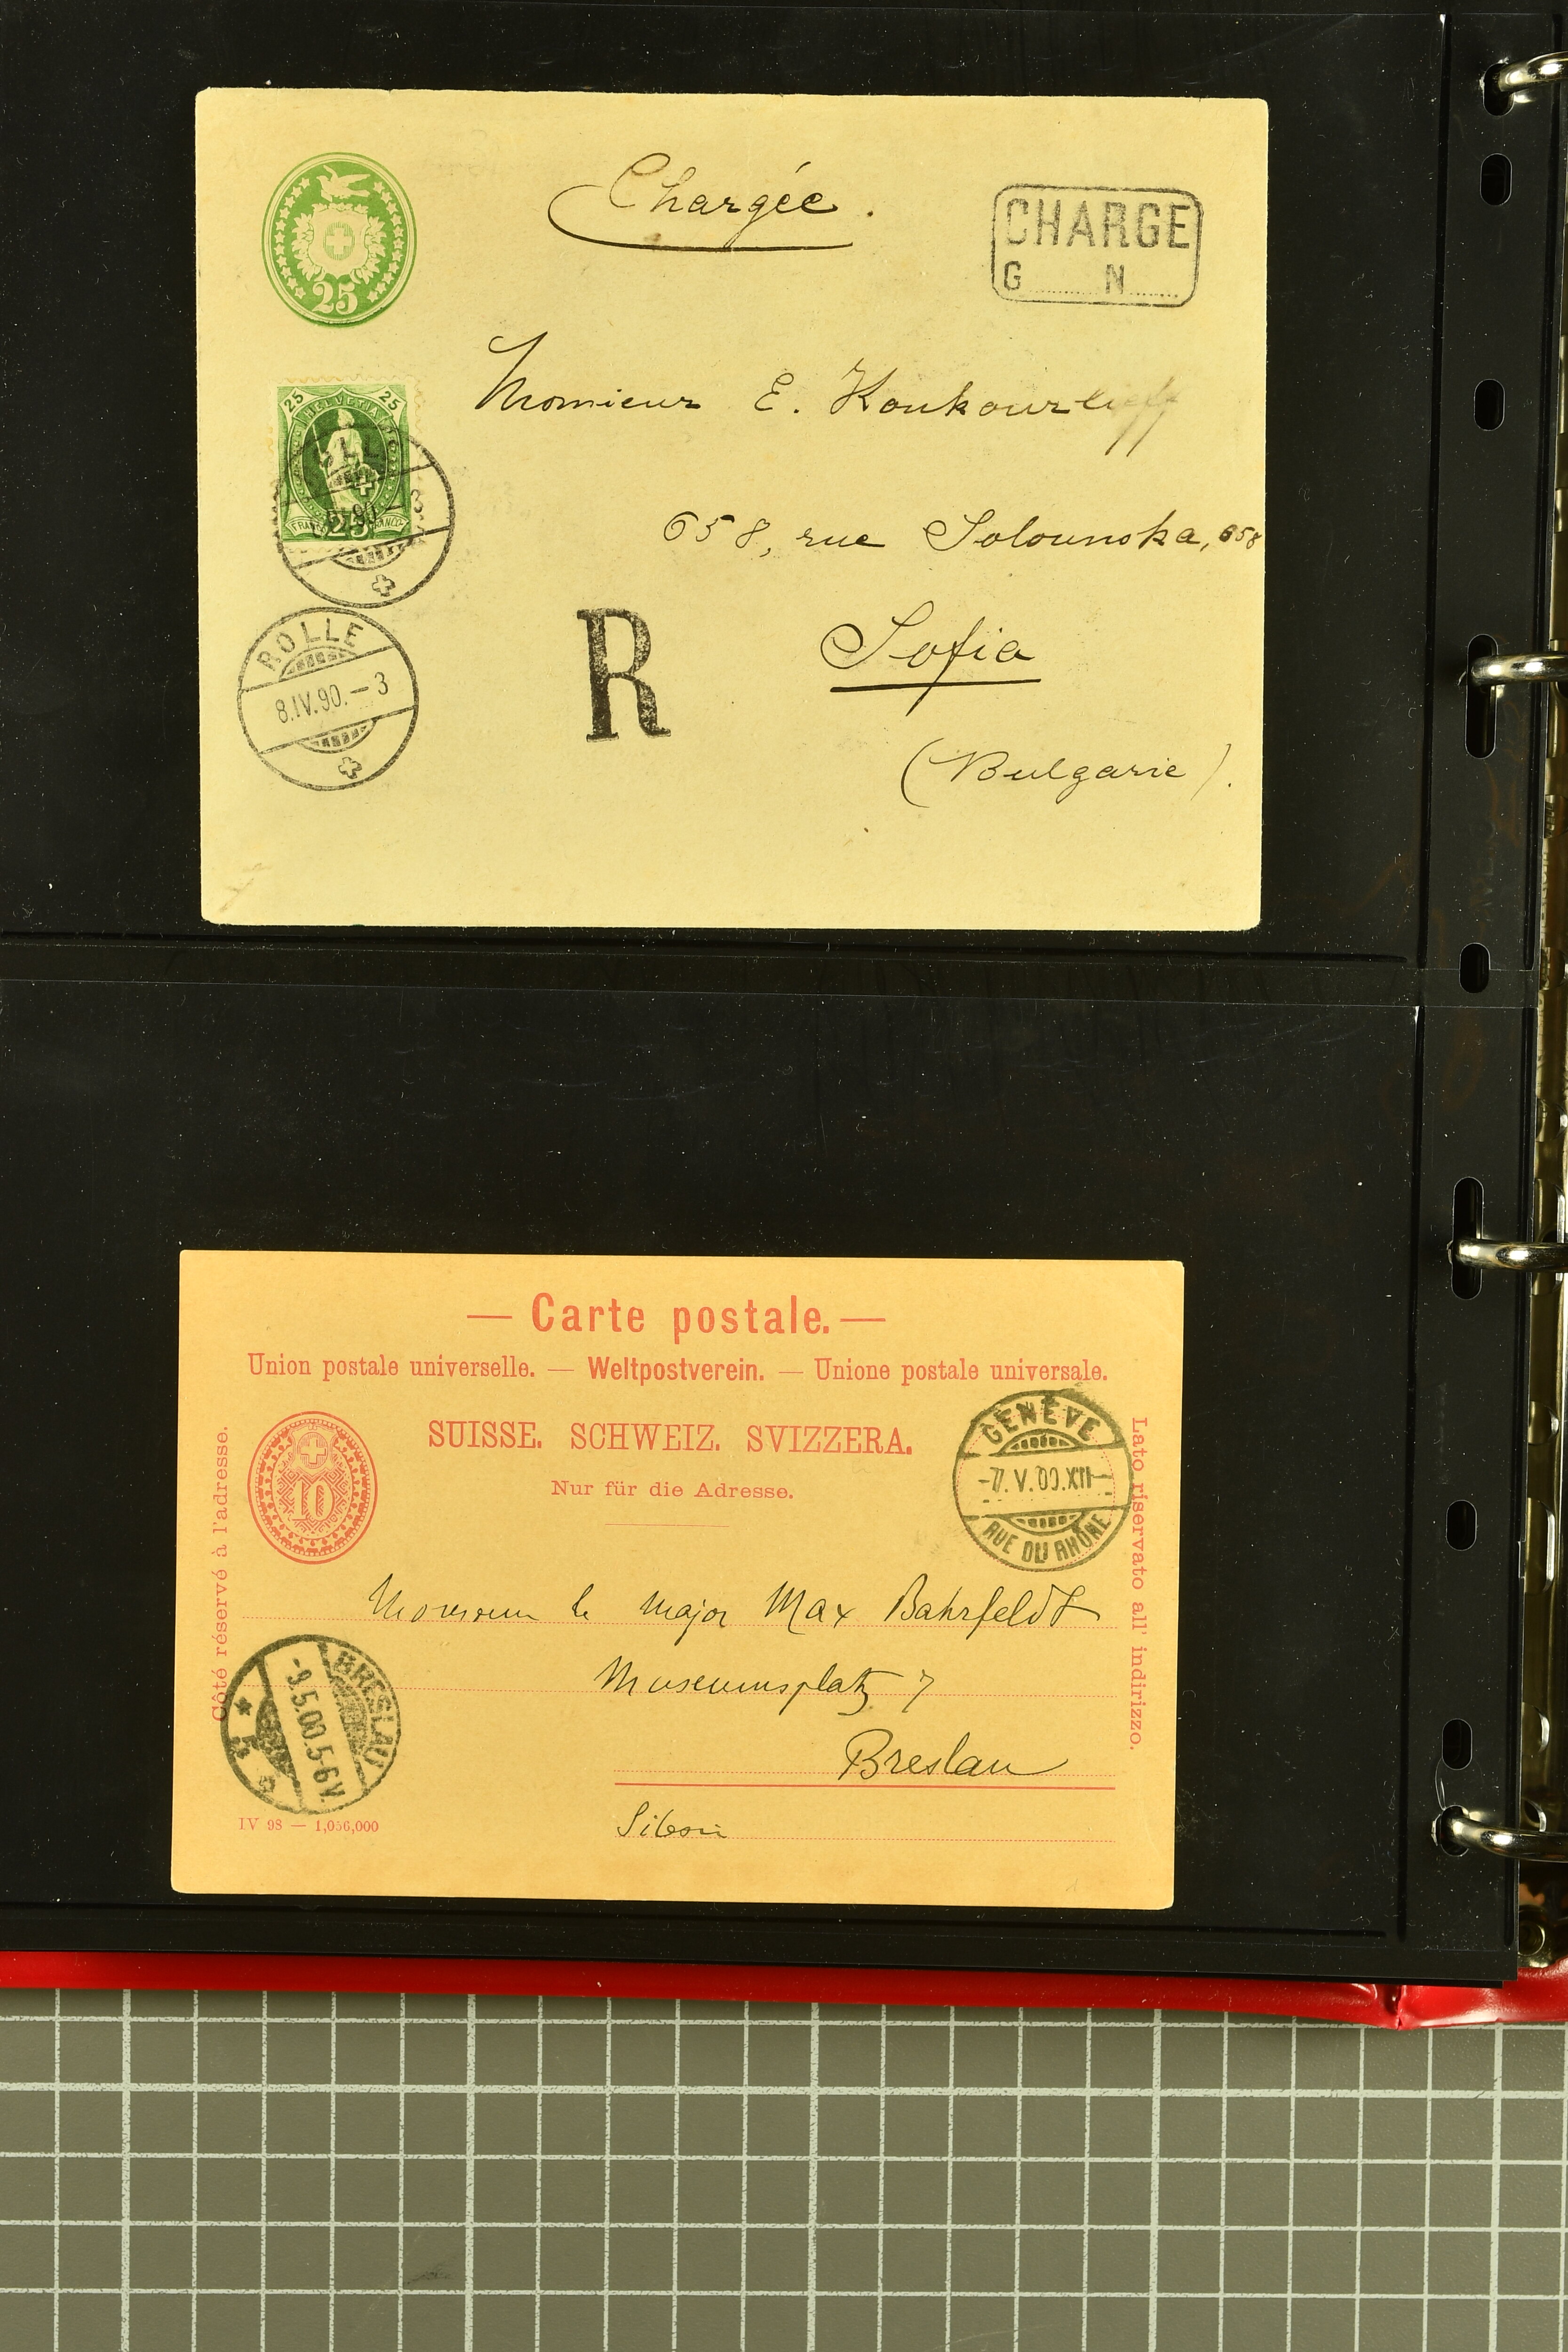 25
Chargée.
CHARGE
G N
25 25
HELVETIA
FRANCO 25 FRANCO
Monsieur E. Koukourleff
658, rue Solounska, 658
Sofia
(Bulgarie).
R
ROLLE
8.IV.90.-3
— Carte postale. —
Union postale universelle. — Weltpostverein. — Unione postale universale.
SUISSE. SCHWEIZ. SVIZZERA.
Nur für die Adresse.
10
Côté réservé à l'adresse.
Lato riservato all' indirizzo.
GENÈVE
-7.V.00.XII-
RUE DU RHÔNE
Monsieur le major Max Bahrfeldt
Museumsplatz 7
Breslau
BRESLAU
-9.5.00.5-6V.
* 5
IV 98 — 1,056,000